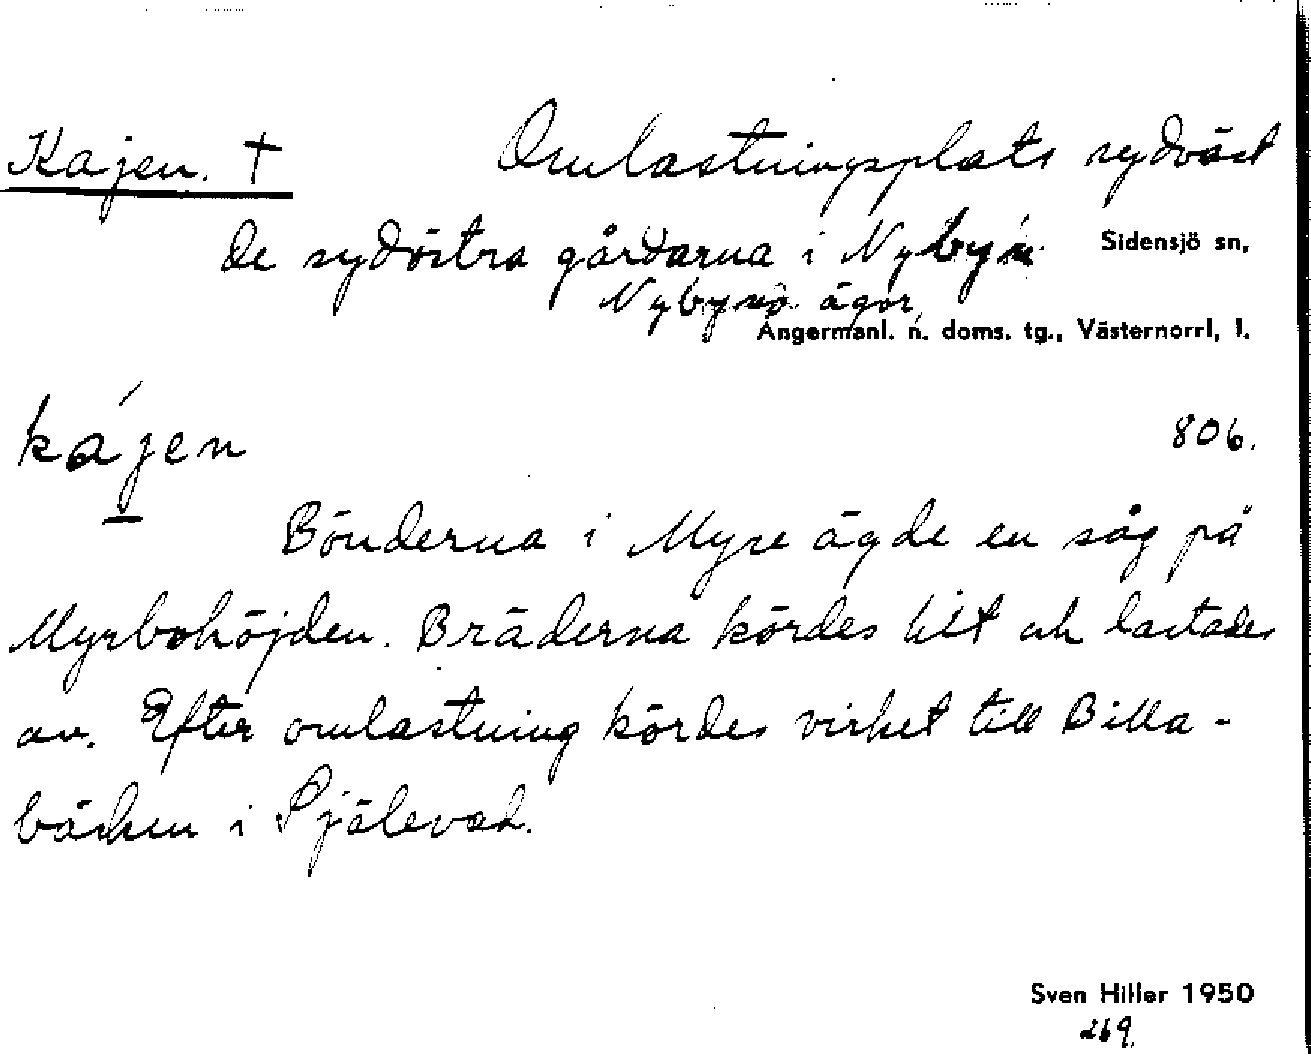 Kajen. †
Omlastningsplats sydväst
de sydöstra gårdarna i Nybyn.
Sidensjö sn,
Nybyns ägor,
Ångermanl. n. doms. tg., Västernorrl, l.
kájen
806.
Bönderna i Myre ägde en såg på
Myrbohöjden. Bräderna kördes hit och lastades
av. Efter omlastning kördes virket till Billa-
bäcken i Själevad.
Sven Hiller 1950
269.